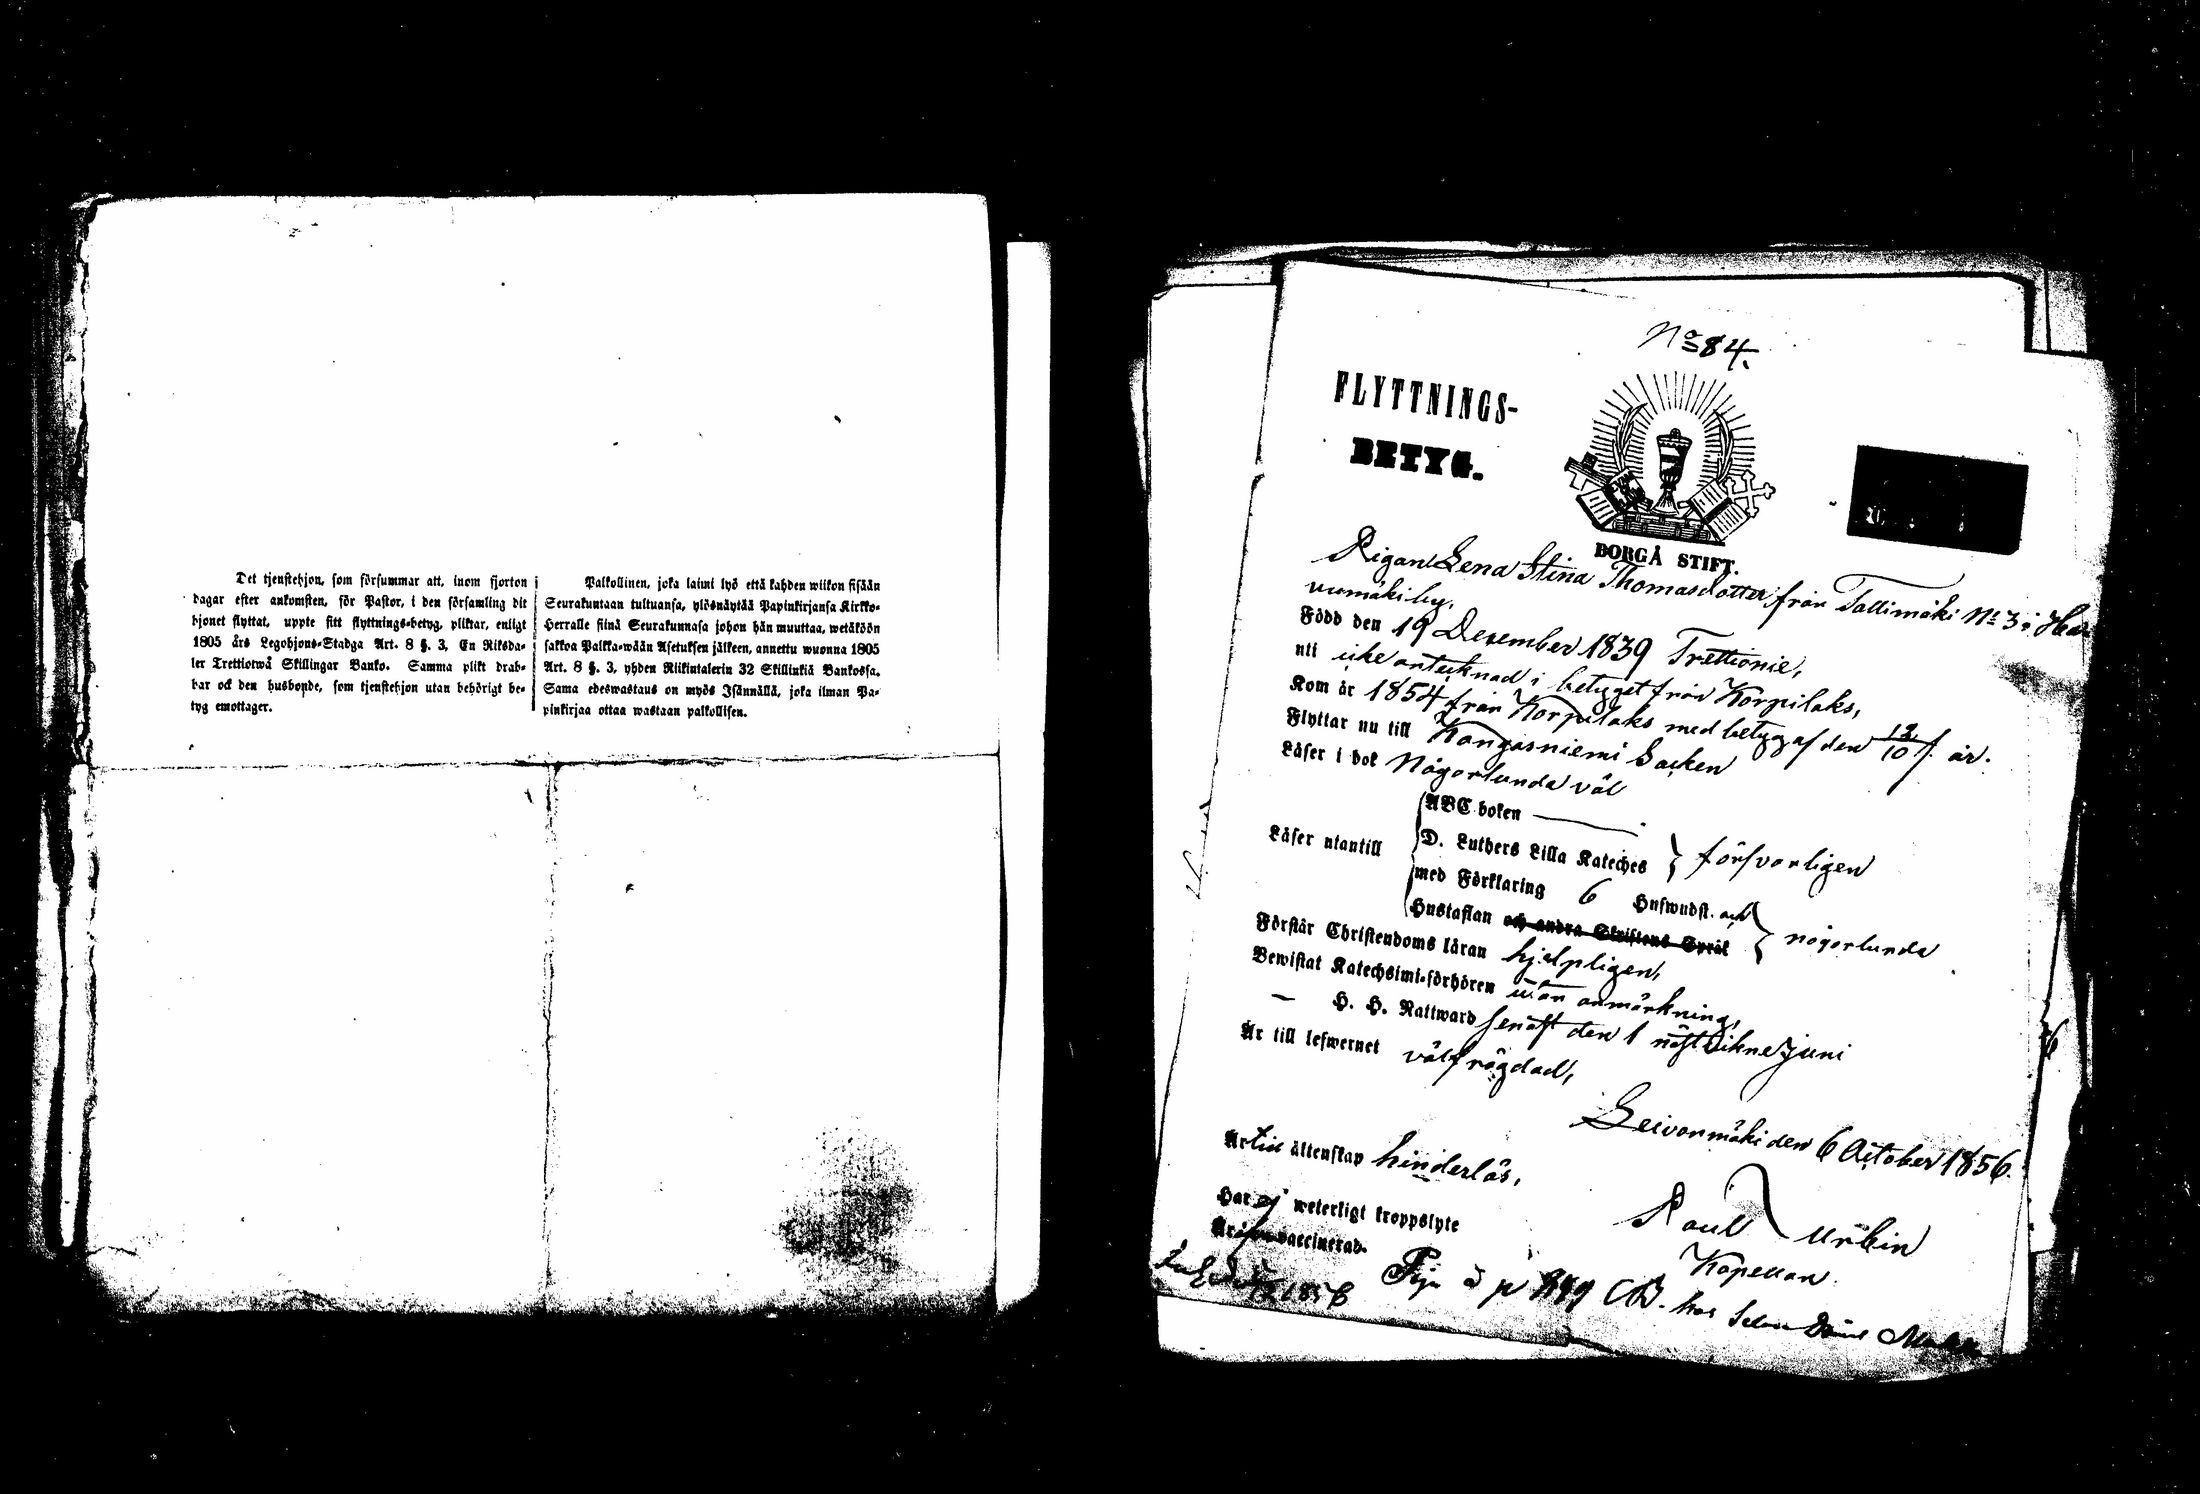 Det tjenstehjon, som försummar att, inom fjorton
dagar efter ankomsten, för Pastor, i den församling dit
hjonet flyttat, uppte sitt flyttnings-betyg, pliktar, enligt
1805 års Legohjons-Stadga Art. 8 §. 3, En Riksda-
ler Trettiotwå Skillingar Banko. Samma plikt drab-
bar ock den husbonde, som tjenstehjon utan behörigt be-
tyg emottager.
Palkollinen, joka laimi lyö että kahden wiikon sisään
Seurakuntaan tultuansa, ylösnäytää Papinkirjansa Kirkko-
Herralle siinä Seurakunnasa johon hän muuttaa, wetäköön
sakkoa Palkka-wään Asetuksen jälkeen, annettu wuonna 1805
Art. 8 §. 3, yhden Riikintalerin 32 Skillinkiä Bankossa.
Sama edeswastaus on myös Isännällä, joka ilman Pa-
pinkirjaa ottaa wastaan palkollisen.
No 84.
FLYTTNINGS-
BETYG.
BORGÅ STIFT.
Pigan Lena Stina Thomasdotter från Tallimäki No 3 i Har
vumäki by,
Född den 19 December 1839 Trettionie,
uti icke antecknad i betyget från Korpilaks,
Kom år 1854 från Korpilaks med betyg af den 12/10 s. år.
Flyttar nu till Kangasniemi Socken
Läser i bok någorlunda väl
Läser utantill
ABC boken
D. Luthers Lilla Kateches
med Förklaring 6
försvarligen
Husandst. och
Hustaflan och andra Skriftens Språk
någorlunda
Förstår Christendoms läran hjelpligen,
Bewistat Katechsimi-förhören utan anmärkning,
— H. H. Nattward senast den 1 nästlidne Juni
Är till lefwernet välfrägdad,
Leivonmäki den 6 October 1856.
Är till äktenskap hinderlös,
Har ej weterligt kroppslyte
Är vaccinerad.
Paul Urbin
Kapellan.
Piga å p